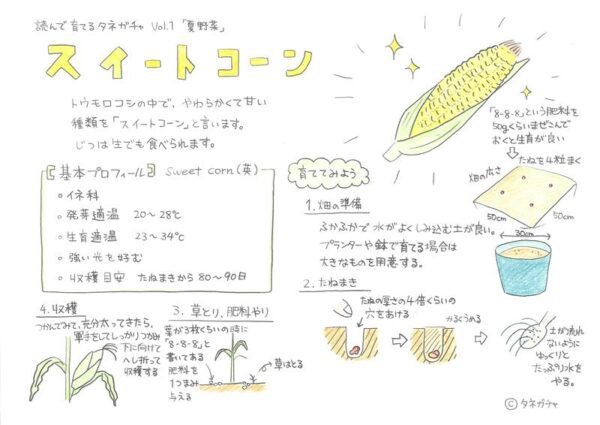 読んで育てるタネガチャ Vol.1「夏野菜」
スイートコーン
トウモロコシの中で、やわらかくて甘い
種類を「スイートコーン」と言います。
じつは生でも食べられます。
基本プロフィール sweet corn(英)
・イネ科
・発芽適温 20〜28℃
・生育適温 23〜34℃
・強い光を好む
・収穫目安 たねまきから80〜90日
育ててみよう
1.畑の準備
ふかふかで水がよくしみ込む土が良い。
プランターや鉢で育てる場合は
大きなものを用意する。
「8-8-8」という肥料を
50gくらいまぜこんで
おくと生育が良い
たねを4粒まく
畑の広さ
50cm
50cm
30cm
2.たねまき
たねの厚さの4倍くらいの
穴をあける
かるくうめる
土が流れ
ないように
ゆっくりと
たっぷり水を
やる。
3.草とり、肥料やり
葉が3枚くらいの時に
「8-8-8」と
書いてある
肥料を
1つまみ
与える
草はとる
4.収穫
つかんでみて、充分太ってきたら、
軍手をしてしっかりつかみ
下に向けて
へし折って
収穫する
©タネガチャ